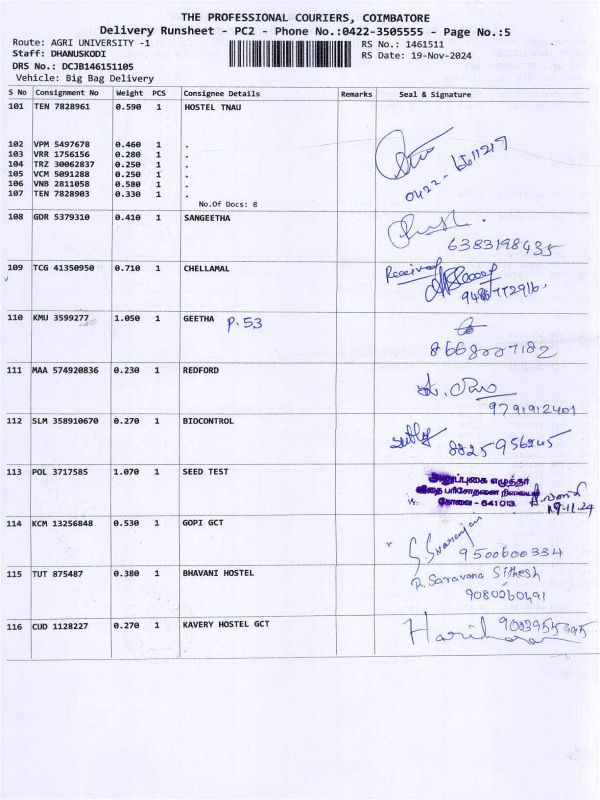 THE PROFESSIONAL COURIERS, COIMBATORE
Delivery Runsheet - PC2 - Phone No.:0422-3505555 - Page No.:5
Route: AGRI UNIVERSITY -1 RS No.: 1461511
Staff: DHANUSKODI RS Date: 19-Nov-2024
DRS No.: DCJB146151105
Vehicle: Big Bag Delivery
S No Consignment No Weight PCS Consignee Details Remarks Seal & Signature
101 TEN 7828961 0.590 1 HOSTEL TNAU
102 VPM 5497678 0.460 1 .
103 VRR 1756156 0.280 1 .
104 TRZ 30062837 0.250 1 .
105 VCM 5091288 0.250 1 .
106 VNB 2811058 0.580 1 .
107 TEN 7828903 0.330 1 .
No.Of Docs: 8
108 GDR 5379310 0.410 1 SANGEETHA
6383198435
109 TCG 41350950 0.710 1 CHELLAMAL Received
110 KMU 3599277 1.050 1 GEETHA P.53
8668007182
111 MAA 574920836 0.230 1 REDFORD
9791912401
112 SLM 358910670 0.270 1 BIOCONTROL
8825956245
113 POL 3717585 1.070 1 SEED TEST
அனுப்புகை எழுத்தர்
விதை பரிசோதனை நிலையம்
கோவை - 641 013.
19.11.24
114 KCM 13256848 0.530 1 GOPI GCT
9500600334
115 TUT 875487 0.380 1 BHAVANI HOSTEL R. Saravana Sithesh
9080260491
116 CUD 1128227 0.270 1 KAVERY HOSTEL GCT Hariharan 9003955995